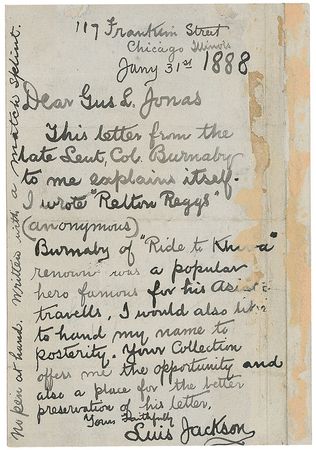 117 Franklin Street
Chicago Illinois
Jany 31st 1888
Dear Gus L. Jonas
This letter from the
late Leut. Col. Burnaby
to me explains itself.
I wrote "Relton Reggs"
(anonymous)
Burnaby of "Ride to Khiva"
renown was a popular
hero famous for his Asiatic
travells. I would also like
to hand my name to
posterity. Your Collection
offers me the opportunity and
also a place for the better
preservation of his letter.
Yours Faithfully
Luis Jackson
No pen at hand. Written with a match splint.